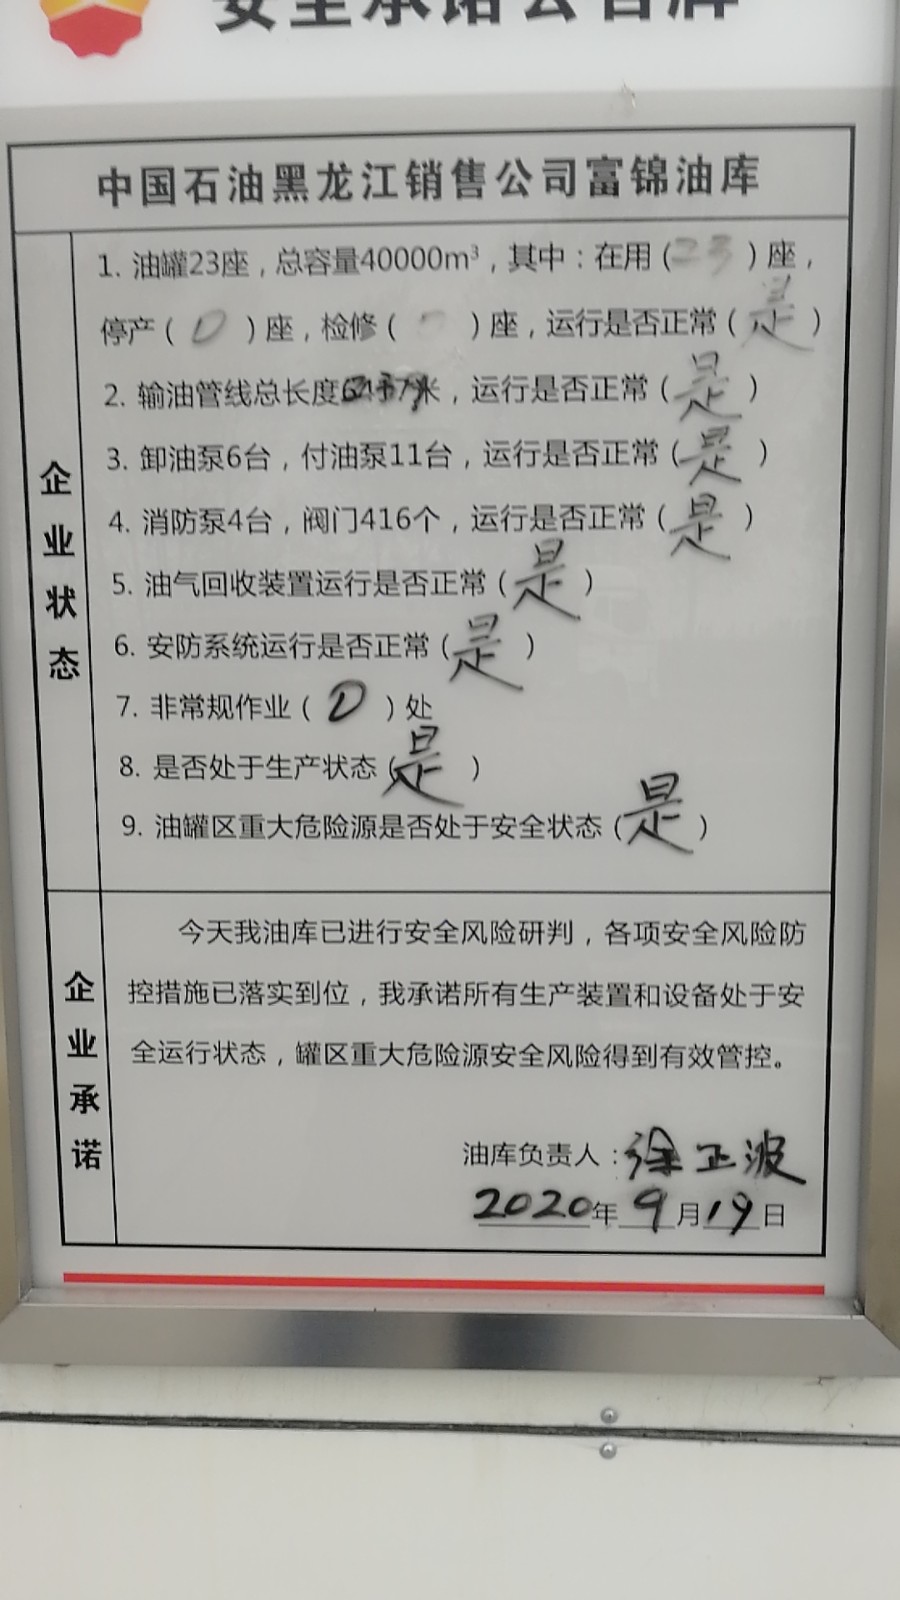 安全承诺公告牌
中国石油黑龙江销售公司富锦油库
企业状态
1. 油罐23座，总容量40000m³，其中：在用（23）座，
停产（0）座，检修（ ）座，运行是否正常（是）
2. 输油管线总长度 米，运行是否正常（是）
3. 卸油泵6台，付油泵11台，运行是否正常（是）
4. 消防泵4台，阀门416个，运行是否正常（是）
5. 油气回收装置运行是否正常（是）
6. 安防系统运行是否正常（是）
7. 非常规作业（0）处
8. 是否处于生产状态（是）
9. 油罐区重大危险源是否处于安全状态（是）
企业承诺
今天我油库已进行安全风险研判，各项安全风险防
控措施已落实到位，我承诺所有生产装置和设备处于安
全运行状态，罐区重大危险源安全风险得到有效管控。
油库负责人：徐正波
2020年9月19日